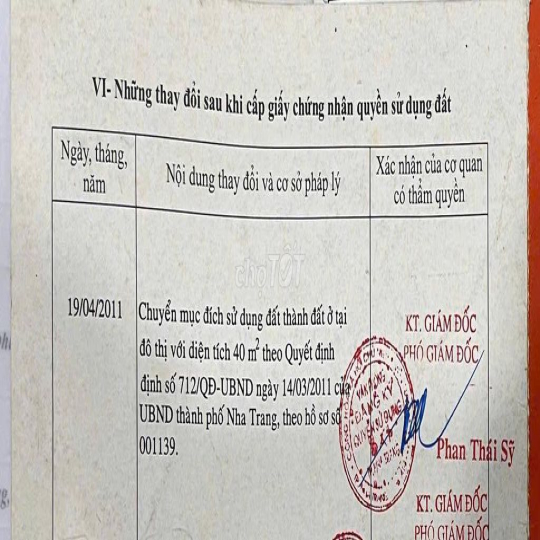 VI- Những thay đổi sau khi cấp giấy chứng nhận quyền sử dụng đất
Ngày, tháng,
năm
Nội dung thay đổi và cơ sở pháp lý
Xác nhận của cơ quan
có thẩm quyền
chợTỐT
19/04/2011
Chuyển mục đích sử dụng đất thành đất ở tại
đô thị với diện tích 40 m² theo Quyết định
định số 712/QĐ-UBND ngày 14/03/2011 của
UBND thành phố Nha Trang, theo hồ sơ số
001139.
KT. GIÁM ĐỐC
PHÓ GIÁM ĐỐC
VĂN PHÒNG
ĐĂNG KÝ
QUYỀN SỬ DỤNG
ĐẤT
Phan Thái Sỹ
KT. GIÁM ĐỐC
PHÓ GIÁM ĐỐC